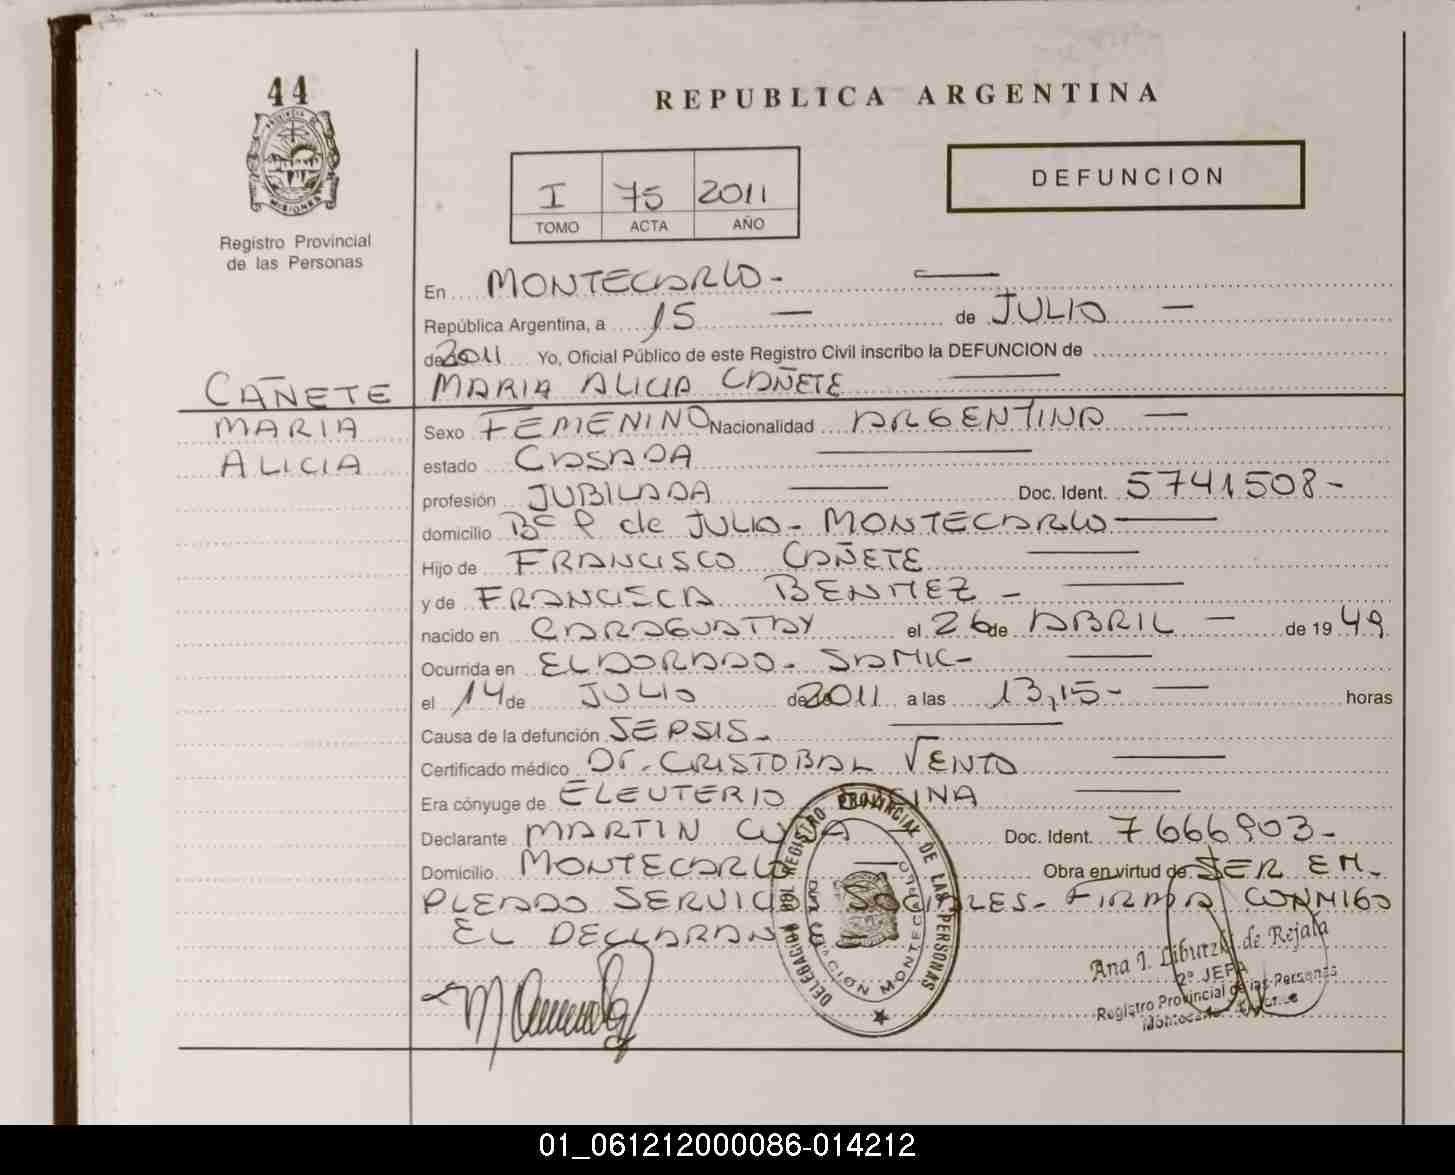 44
PROVINCIA DE
MISIONES
Registro Provincial
de las Personas
REPUBLICA ARGENTINA
I 75 2011
TOMO ACTA AÑO
DEFUNCION
En MONTECARLO -
República Argentina, a 15 — de JULIO —
de 2011 Yo, Oficial Público de este Registro Civil inscribo la DEFUNCION de
CAÑETE
MARIA
ALICIA
MARIA ALICIA CAÑETE
Sexo FEMENINO Nacionalidad ARGENTINA —
estado CASADA
profesión JUBILADA Doc. Ident. 5741508-
domicilio Bº 9 de JULIO - MONTECARLO
Hijo de FRANCISCO CAÑETE
y de FRANCISCA BENITEZ -
nacido en CARAGUATAY el 26 de ABRIL — de 19 49
Ocurrida en ELDORADO - SAMIC-
el 14 de JULIO de 2011 a las 13,15- — horas
Causa de la defunción SEPSIS -
Certificado médico Dr. CRISTOBAL VENTO
Era cónyuge de ELEUTERIO
Declarante MARTIN Doc. Ident. 7666903-
Domicilio MONTECARLO Obra en virtud de SER EM-
PLEADO SERVICIOS SOCIALES - FIRMA CONMIGO
EL DECLARAN
DELEGACION DEL REGISTRO PROVINCIAL DE LAS PERSONAS
MONTECARLO
Ana I. Libutzki de Rejala
2º JEFA
Registro Provincial de las Personas
01_061212000086-014212